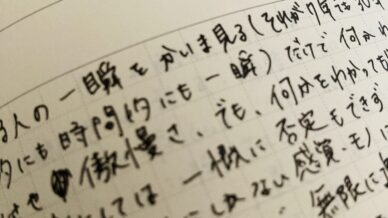 る人の一瞬をかいま見る(それが7年でも30
タにも時間的にも一瞬)だけで何かわ
せ 傲慢さ、でも、何かをわかっても
しては一概に否定もできず
ない感覚・モノ
無限に